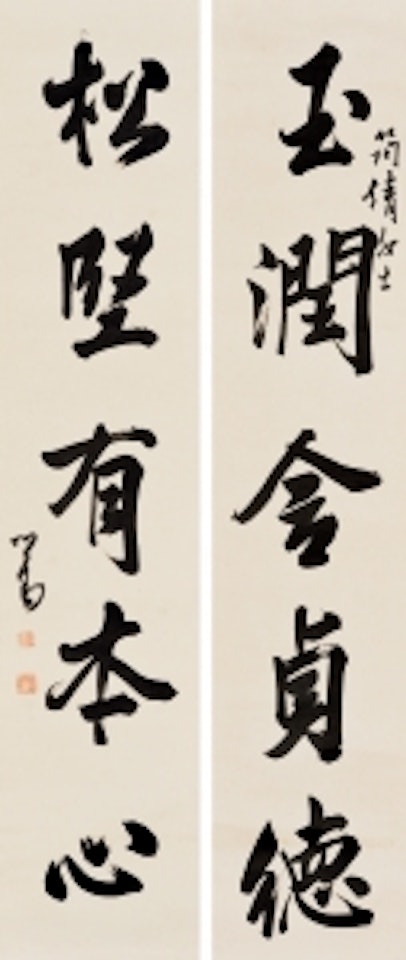 玉潤含貞德
筠倩女士
松堅有本心
心畬